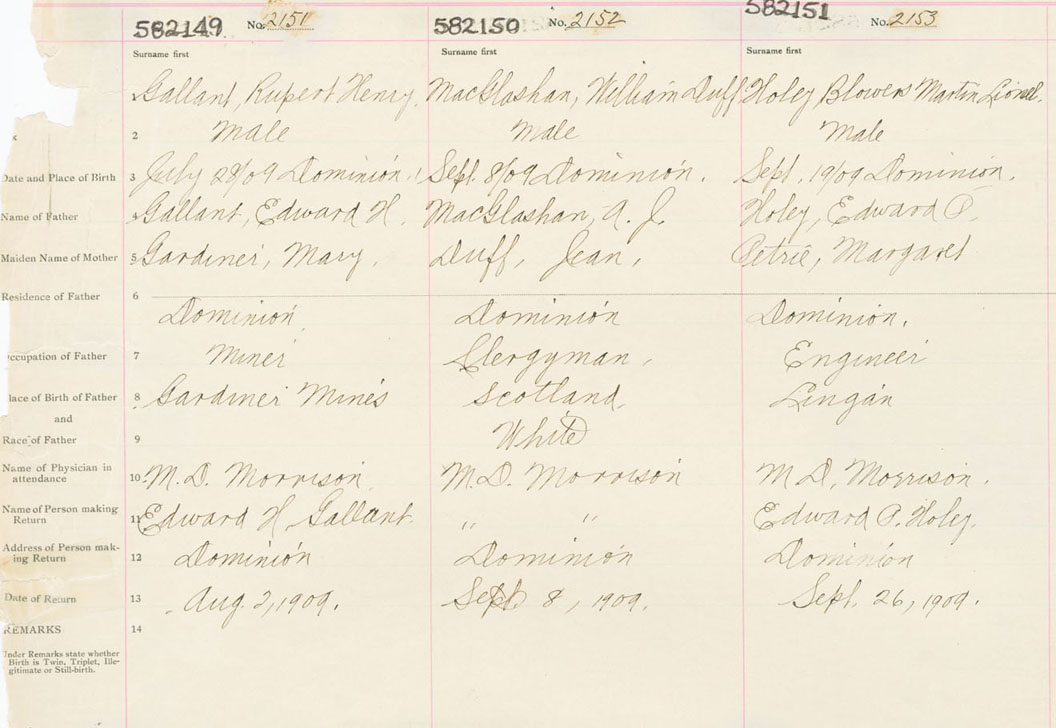 582149 No. 2151 582150 No. 2152 582151 No. 2153
Surname first Surname first Surname first
1 Gallant, Rupert Henry. MacGlashan, William Duff Holey Blowers Martin Lionel.
2 Male Male Male
Date and Place of Birth 3 July 28/09 Dominion. Sept. 8/09 Dominion. Sept. 19/09 Dominion.
Name of Father 4 Gallant, Edward H. MacGlashan, A. J. Holey, Edward P.
Maiden Name of Mother 5 Gardiner, Mary. Duff, Jean, Petrie, Margaret
Residence of Father 6 Dominion Dominion Dominion.
ccupation of Father 7 Miner Clergyman Engineer
lace of Birth of Father 8 Gardiner Mines Scotland, Lingan
and
Race of Father 9 White
Name of Physician in
attendance 10 M. D. Morrison M. D. Morrison M D, Morrison.
Name of Person making
Return 11 Edward H Gallant. " " Edward P. Holey.
Address of Person mak-
ing Return 12 Dominion Dominion Dominion
Date of Return 13 Aug. 2, 1909. Sept 8, 1909. Sept. 26, 1909.
REMARKS 14
nder Remarks state whether
Birth is Twin, Triplet, Ille-
gitimate or Still-birth.